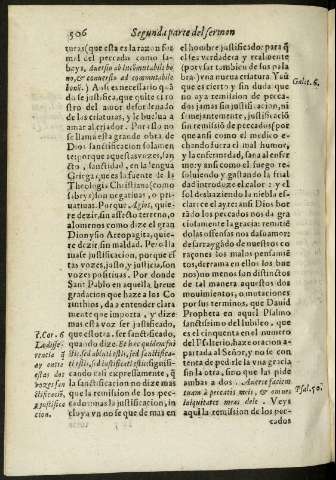 506 Segunda parte del sermon
turas (que esta es la razon for
mal del peccado como sa-
beys, Auersio ab incōmutabile bo
no, & conuersio ad commutabile
bonū.) Assi es necessario q̄ a
du se justifica, que quite el ro
stro del amor desordenado
de las criaturas, y le buelua a
amar al criador. Por esso no
se llama esta grande obra de
Dios sanctificacion solamen
te: porque aquessas vozes, san
cto, sanctidad, en la lengua
Griega, que es la fuente de la
Theologia Christiana (como
sabeys) son negatiuas, o pri-
uatiuas. Porque Agios, quie-
re dezir, sin affecto terreno, o
alomenos como dize el gran
Dionysio Areopagita, quie-
re dezir sin maldad. Pero lla
mase justificacion, porque es
tas vozes, justo, y justicia, son
vozes positiuas. Por donde
Sant Pablo en aquella breue
gradacion que haze a los Co
rinthios, da a entender clara
mente que importa, y dize
mas esta voz ser justificado,
que estotra ser sanctificado,
quando dize. Et hæc quidem fui
stis, sed abluti estis, sed sanctifica-
ti estis, sed iustificati estis: signifi-
cando casi expressamente, q̄
la sanctificacion no dize mas
que la remission de los pec-
cados: mas la justificacion, in
cluya vn no se que de mas en
1. Cor. 6
La diffe-
rencia q̄
ay entre
estas dos
vozes san
ctificaciō,
y justifica
cion.
el hombre justificado: para q̄
el sea verdadera y realmente
(por vsar tambien de sus pala
bras) vna nueua criatura. Y aū
que es cierto y sin duda que
no aya remision de peccados
jamas sin justificacion, ni
semejantemente, justificaciō
sin remisiō de peccados (por
que ansi como el medico e-
chando fuera el mal humor,
y la enfermedad, sana al enfer
mo: y ansi como el fuego re-
soluiendo y gastando la frial
dad introduze el calor: y el
sol desbaziendo la niebla es-
clarece el ayre: ansi Dios bor
rādo los peccados nos da gra
ciosamente la gracia: remitiē
do las offensas nos da amor:
desarraygādo de nuestros co
raçones los malos pensamiē
tos, derrama en ellos los bue
nos) no menos son distinctos
de tal manera aquestos dos
mouimientos, o mutaciones
por sus terminos, que Dauid
Propheta en aquel Psalmo
sanctissimo del Iubileo, que
es el cinquenta en el numero
del Psalterio, haze oracion a-
partada al Señor, y no se con
tenta de pedirle la vna gracia
sin la otra, sino que las pide
ambas a dos. Auerte faciem
tuam à peccatis meis, & omnes
iniquitates meas dele. Veys
aqui la remission de los pec-
cados
Galat. 6.
Psal. 50.